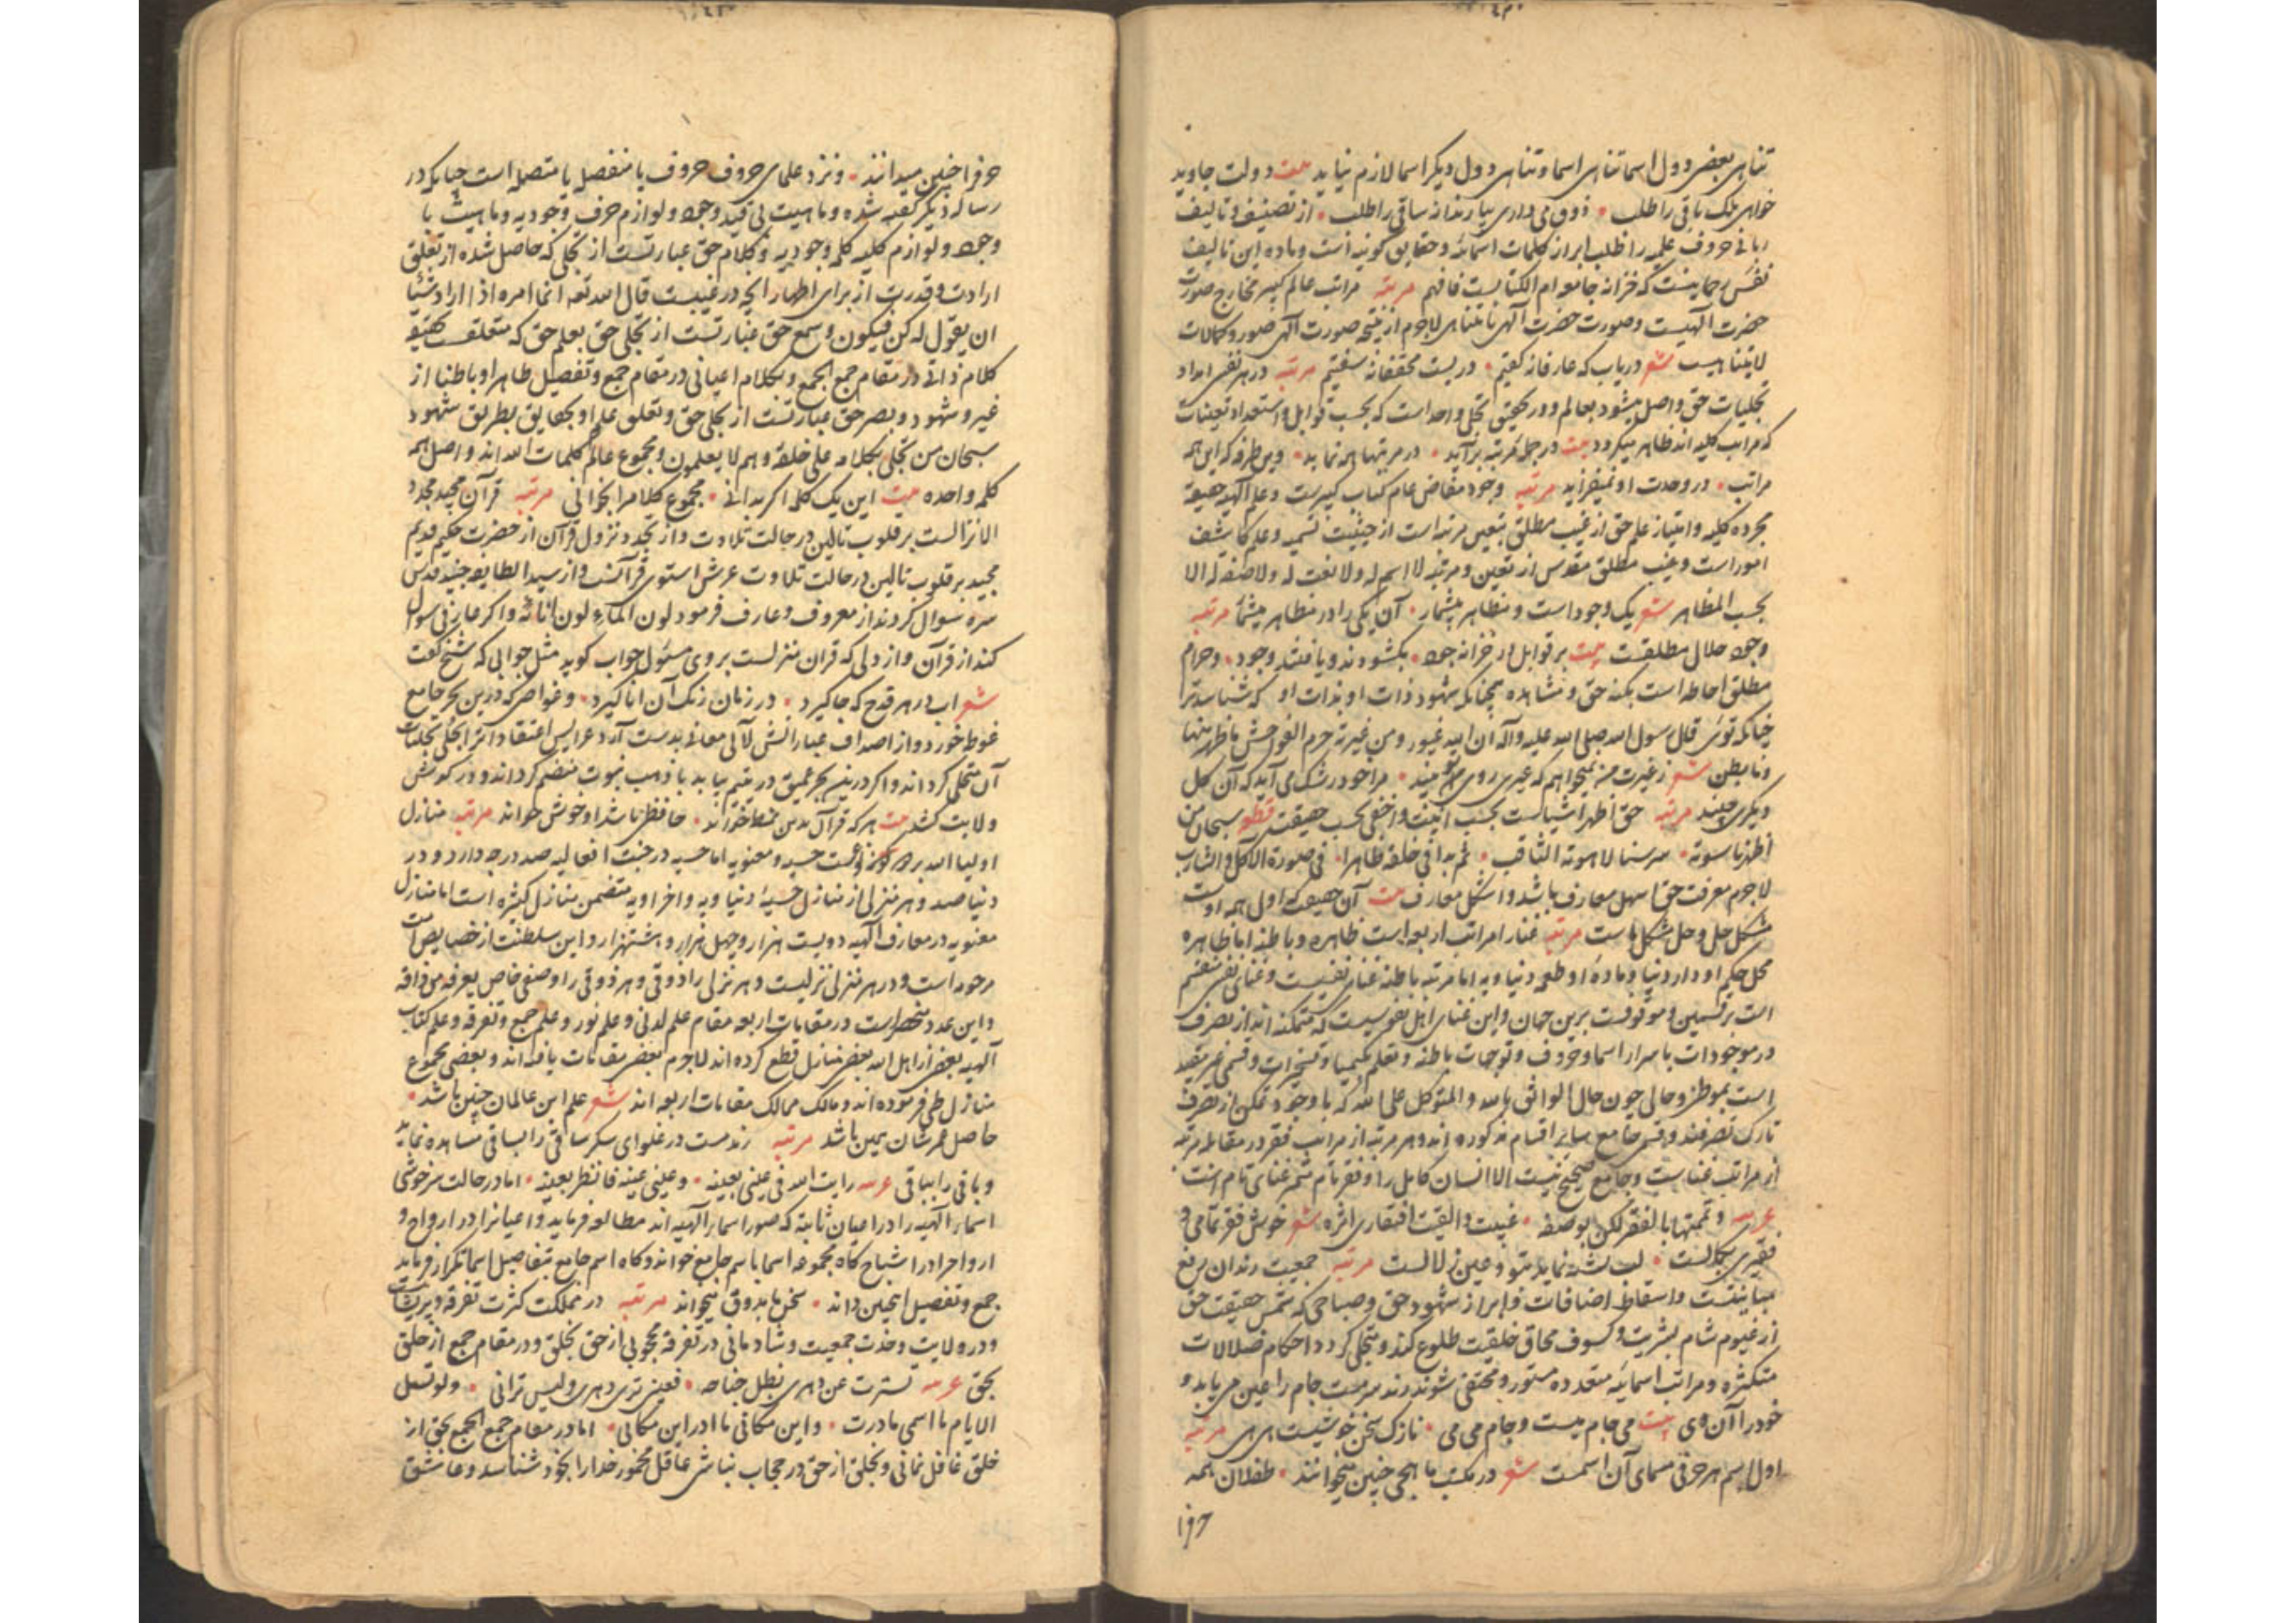 تناهی بعضی دول اسما تناهی اسما و تناهی دول دیگر اسما لازم نیاید بیت دولت جاوید
خواهی ملک باقی را طلب ذوق می داری بیا رندانه ساقی را طلب از تصنیف و تالیف
ربانی حروف علمیه را طلب ابراز کلمات اسمائیه و حقایق کونیه است و ماده این تالیف
نفس رحمانیست که خزانه جامع ام الکتابست فافهم مرتبه مراتب عالم کبیر مخارج صورت
حضرت الهیست و صورت حضرت الهی نامتناهی لاجرم از نتیجه صورت الهی صور و کمالات
لایتناهیست شعر دریاب که عارفانه گفتیم در بست محققانه سفتیم مرتبه در هر نفس امداد
تجلیات حق واصل میشود بعالم و در تحقیق تجلی واحد است که بحسب قوابل و استعداد تعینات
که مراتب کلیه اند ظاهر میگردد بیت در جمله مرتبه برآید در مرتبها همه نماید وین طرفه که این همه
مراتب در وحدت او نمیفزاید مرتبه وجود مفاض عام کتاب کبیرست و علم الهیه حقیقة
مجرده کلیه و امتیاز علم حق از غیب مطلق بتعین مرتبه است از حیثیت تسمیه و علم کاشف
امور است و غیب مطلق مقدس از تعین و مرتبه لا اسم له و لا نعت له و لا صفة له الا
بحسب المظاهر شعر یک وجود است و مظاهر بیشمار آن یکی را در مظاهر میشمار مرتبه
وجود حلال مطلقست بیت بر قوابل در خزانه جود بگشودند و یافتند وجود و حرام
مطلق احاطه است بکنه حق و مشاهده همچنانکه شهود ذات او بذات او که شناسد ترا
چنانکه توئی قال رسول الله صلی الله علیه و آله ان الله غیور و من غیرته حرم الفواحش ما ظهر منها
و ما بطن شعر ز غیرت من نمیخواهم که غیری روی او بیند مرا خود رشک می آید که آن گل
دیگری چیند مرتبه حق اظهر اشیاست بحسب انیت و اخفی بحسب حقیقت قطعه سبحان من
اظهر ناسوته سر سنا لاهوته الثاقب ثم بدا فی خلقه ظاهرا فی صورة الآکل و الشارب
لاجرم معرفت حق اسهل معارف باشد و اشکل معارف بیت آن حقیقت که اول همه اوست
مشکل حل و حل مشکل ماست مرتبه غنا را مراتب اربعه است ظاهره و باطنه اما ظاهره
محل حکم او دار دنیا و ماده او طعمه دنیاویه اما مرتبه باطنه غنای نفسیست و غنای نفس منقسم
است بر قسمین و موقوفست برین جهان و این غنای اهل نفوسیست که متمکنه اند از تصرف
در موجودات باسرار اسما و حروف و توجهات باطنه و تعلم کیمیا و تسخیرات و قسمی غیر مقید
است بموطن و حالی چون حال الواثق بالله و المتوکل علی الله که با وجود تمکن از تصرف
تارک تصرفند و قسمی جامع سایر اقسام مذکوره اند و هر مرتبه از مراتب فقر در مقابله مرتبه
از مراتب غناست و جامع صحیح نیست الا انسان کامل را و فقر تام مثمر غنای تام است
عربیه و تممتها بالفقر لکن بوصفه غنیت و القیت افتقاری اثره شعر خوش فقر تمامی و
فقیری بکمالست لب تشنه نماید بتو و عین زلالست مرتبه جمعیت رندان برفع
مباینتست و اسقاط اضافات و ابراز شهود حق و صباحی که شمس حقیقت حق
از غیوم شام بشریت و کسوف محاق خلقیت طلوع کند و متجلی گردد احکام ضلالات
متکثره و مراتب اسمائیه متعدده مستور و مختفی شوند رند سرمست جام را عین می یابد و
خود را آن می بیت می جام میست و جام می می نازک سخن خوشیست هی هی مرتبه
اول اسم هر حرفی مسمای آن اسمست شعر در مکتب ما هجی چنین میخوانند طفلان همه
حرف
حرف را چنین میدانند و نزد علمای حروف حروف یا منفصل یا متصله است چنانکه در
رساله دیگر گفته شده و ماهیت بی قید وجود و لوازم حرف وجودیه و ماهیت با
وجود و لوازم کلیه کلمه وجودیه و کلام حق عبارتست از تجلی که حاصل شده از تعلق
ارادت و قدرت از برای اظهار آنچه در غیبست قال الله تعالی انما امره اذا اراد شیئا
ان یقول له کن فیکون و سمع حق عبارتست از تجلی حق بعلم حق که متعلقست بحقیقة
کلام ذاتی در مقام جمع الجمع و بکلام اعیانی در مقام جمع و تفصیل ظاهرا و باطنا از
غیر و شهود و بصر حق عبارتست از تجلی حق و تعلق علم او بحقایق بطریق شهود
سبحان من تجلی بکلامه علی خلقه و هم لا یعلمون و مجموع عالم کلمات الله اند و اصل همه
کلمه واحده بیت این یک کلمه اگر بدانی مجموع کلام را بخوانی مرتبه قرآن مجید مجدد
الانزالست بر قلوب تالین در حالت تلاوت و از تجدد نزول قرآن از حضرت حکیم قدیم
مجید بر قلوب تالین در حالت تلاوت عرش استوی قرآنست و از سید الطایفه جنید قدس
سره سوال کردند از معروف و عارف فرمود لون الماء لون انائه و اگر عارفی سوال
کند از قرآن و از دلی که قرآن منزلست بر وی مسئول جواب گوید مثل جوابی که شیخ گفت
شعر آب در هر قدح که جا گیرد در زمان رنگ آن انا گیرد و غواصی که درین بحر جامع
غوطه خورد و از اصداف عباراتش لآلی معانی بدست آرد عرایس اعتقاد اترابحلی تجلیات
آن متحلی گرداند و اگر درین بحر عمیق در یتیم بیابد با ذهب نبوت منضم گرداند و در گوش
ولایت کشد بیت هر که قرآن بدین نمط خواند حافظی باشد او خوش خواند مرتبه منازل
اولیاء الله بر دو نوعست حسیه و معنویه اما حسیه در جنت افعالیه صد درجه دارد و در
دنیا صد و هر منزلی از منازل حسیه دنیاویه و اخراویه متضمن منازل کثیره است اما منازل
معنویه در معارف الهیه دویست هزار و چهل هزار و هشتهزار و این سلطنت از خصایص امت
مرحومه است و در هر منزلی نزلیست و هر نزلی را ذوقی و هر ذوقی را وصفی خاص یعرفه من ذاقه
و این عدد منحصر است در مقامات اربعه مقام علم لدنی و علم نور و علم جمع و تفرقه و علم کتاب
الهیه بعضی از اهل الله بعضی منازل قطع کرده اند لاجرم بعضی مقامات یافته اند و بعضی مجموع
منازل طی فرموده اند و مالک ممالک مقامات اربعه اند شعر علم این عالمان چنین باشد
حاصل عمرشان همین باشد مرتبه رند مست در غلوای سکر ساقی را بساقی مشاهده نماید
و باقی را بباقی عربیه رایت الله فی عینی بعینه و عینی عینه فانظر بعینه اما در حالت سرخوشی
اسماء الهیه را در اعیان ثابته که صور اسماء الهیه اند مطالعه فرماید و اعیان را در ارواح و
ارواح را در اشباح گاه مجموعه اسما باسم جامع خواند و گاه اسم جامع بتفاصیل اسما تکرار فرماید
جمع و تفصیل اینچنین داند سخن ما بذوق میخواند مرتبه در مملکت کثرت تفرقه و پریشانیست
و در ولایت وحدت جمعیت و شادمانی در تفرقه محجوبی از حق بخلق و در مقام جمع از خلق
بحق عربیه تسترت عن دهری بظل جناحه فعینی تری دهری و لیس ترانی و لو تسل
الایام ما اسمی ما درت و این مکانی ما ادر این مکانی اما در مقام جمع الجمع بحق از
خلق غافل نمانی و بخلق از حق در حجاب نباشی عاقل مخمور خدا را بخود شناسد و عاشق